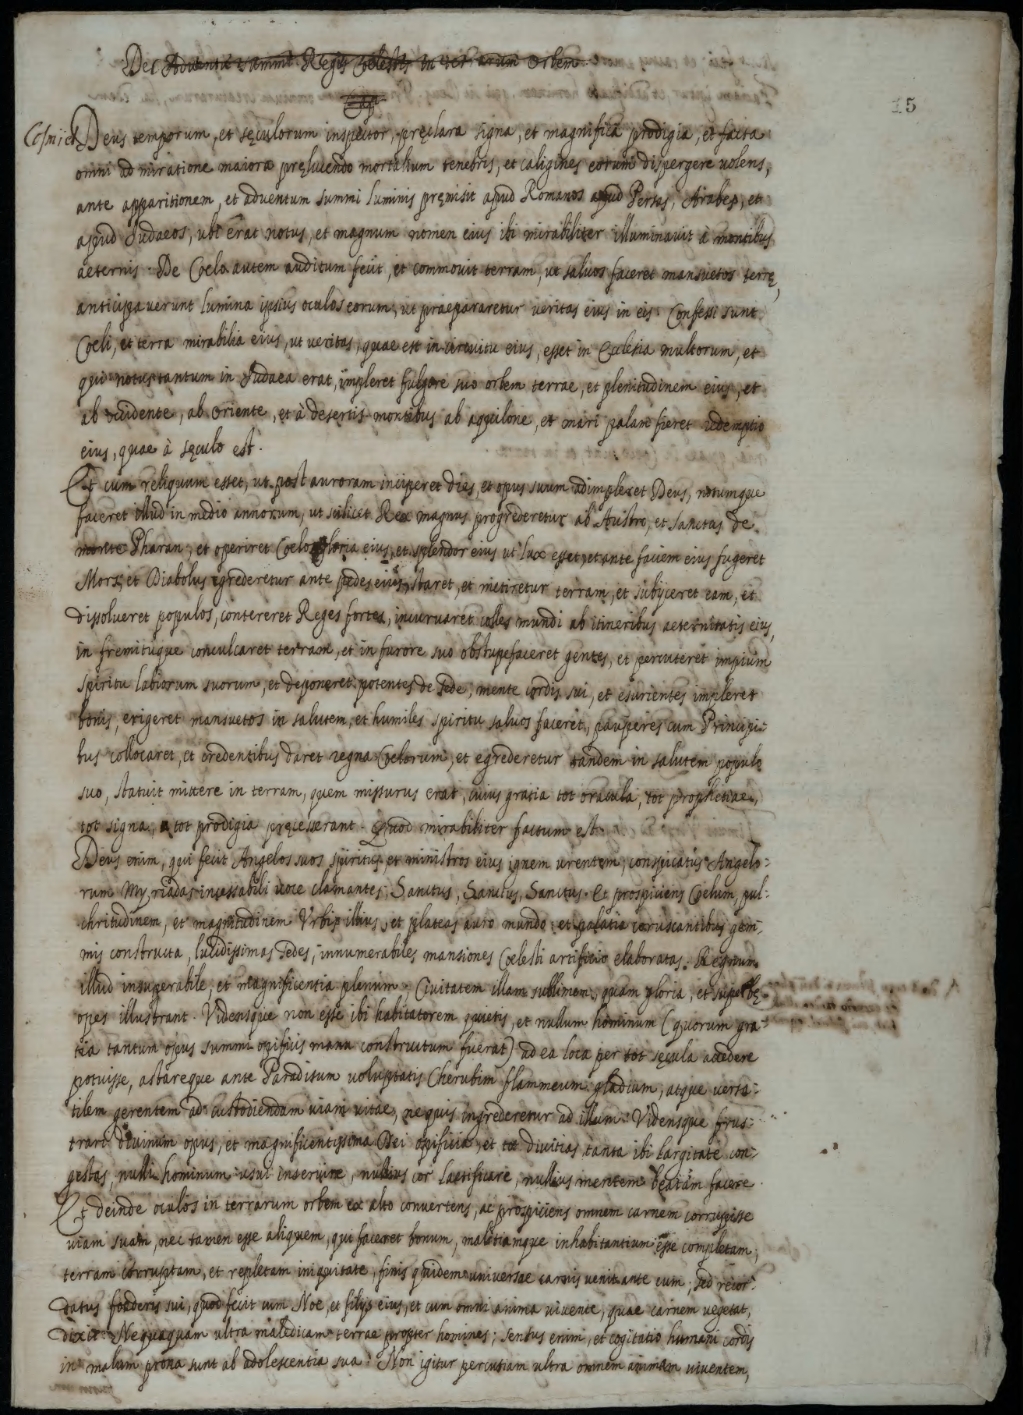 De Adventu summi Regis Celestis in terrarum Orbem
15
Cosmici Deus temporum, et sęculorum inspector, pręclara signa, et magnifica prodigia, et facta
omni admiratione maiora pręlucendo mortalium tenebris, et caligines eorum dispergere uolens,
ante apparitionem, et aduentum summi luminis pręmisit apud Romanos apud Persas, Arabes, et
apud Judaeos, ubi erat notus, et magnum nomen eius ibi mirabiliter illuminauit à montibus
aeternis. De Coelo autem auditum fecit, et commouit terram, ut saluos faceret mansuetos terrę,
anticipauerunt lumina ipsius oculos eorum, ut praepararetur ueritas eius in eis. Confessi sunt
Coeli, et terra mirabilia eius, ut ueritas, quae est in circuitu eius, esset in Ecclesia multorum, et
qui notus tantum in Judaea erat, impleret fulgore suo orbem terrae, et plenitudinem eius, et
ab occidente, ab oriente, et à desertis montibus ab aquilone, et mari palam fieret redemptio
eius, quae à sęculo est.
Et cum reliquum esset, ut post auroram inciperet dies, et opus suum adimpleret Deus, notumque
faceret illud in medio annorum, ut scilicet Rex magnus progrederetur ab Austro, et sanctus de
monte Pharan, et operiret Coelos gloria eius, et splendor eius ut lux esset, et ante faciem eius fugeret
Mors, et Diabolus egrederetur ante pedes eius, staret, et metiretur terram, et subijceret eam, et
dissolueret populos, contereret Reges fortes, incuruaret colles mundi ab itineribus aeternitatis eius,
in fremituque conculcaret terram, et in furore suo obstupefaceret gentes, et percuteret impium
spiritu labiorum suorum, et deponeret potentes de sede, mente cordis sui, et esurientes impleret
bonis, erigeret mansuetos in salutem, et humiles spiritu saluos faceret, pauperes cum Principi-
bus collocaret, et credentibus daret regna Coelorum, et egrederetur tandem in salutem populo
suo, statuit mittere in terram, quem missurus erat, cuius gratia tot oracula, tot prophetiae,
tot signa, tot prodigia pręcesserant. Quod mirabiliter factum est.
Deus enim, qui fecit Angelos suos spiritus, et ministros eius ignem urentem, conspicatus Angelo-
rum Myriadas incessabili uoce clamantes, Sanctus, Sanctus, Sanctus. Et prospiciens Coelum, pul-
chritudinem, et magnitudinem Urbis illius, et plateas auro mundo, et palatia coruscantibus gem-
mis constructa, lucidissimas sedes, innumerabiles mansiones Coelesti artificio elaboratas. Regnum
illud insuperabile, et magnificentia plenum. Ciuitatem illam sublimem, quam gloria, et superbę
opes illustrant. Vidensque non esse ibi habitatorem quietis, et nullum hominum (quorum gra-
tia tantum opus summi opificis manu constructum fuerat) ad ea loca per tot sęcula accedere
potuisse, astareque ante Paradisum uoluptatis Cherubim flammeum gladium, atque uersa-
tilem gerentem ad custodiendam uiam uitae, ne quis ingrederetur ad illam. Vidensque frus-
trari diuinum opus, et magnificentissima Dei opificia, et tot diuitias tanta ibi largitate con-
gestas, nulli hominum usui inseruire, nullius cor laetificare, nullius mentem beatam facere.
Et deinde oculos in terrarum orbem ex alto conuertens, ac prospiciens omnem carnem corrupisse
uiam suam, nec tamen esse aliquem, qui faceret bonum, malitiamque inhabitantium esse completam,
terram corruptam, et repletam iniquitate, finis quidem uniuersae carnis uenit ante eum, sed recor-
datus foederis sui, quod fecit cum Noe, et filijs eius, et cum omni anima uiuente, quae carnem uegetat,
dixit. Nequaquam ultra maledicam terrae propter homines, sensus enim, et cogitatio humani cordis
in malum prona sunt ab adolescentia sua. Non igitur percutiam ultra omnem animam uiuentem,